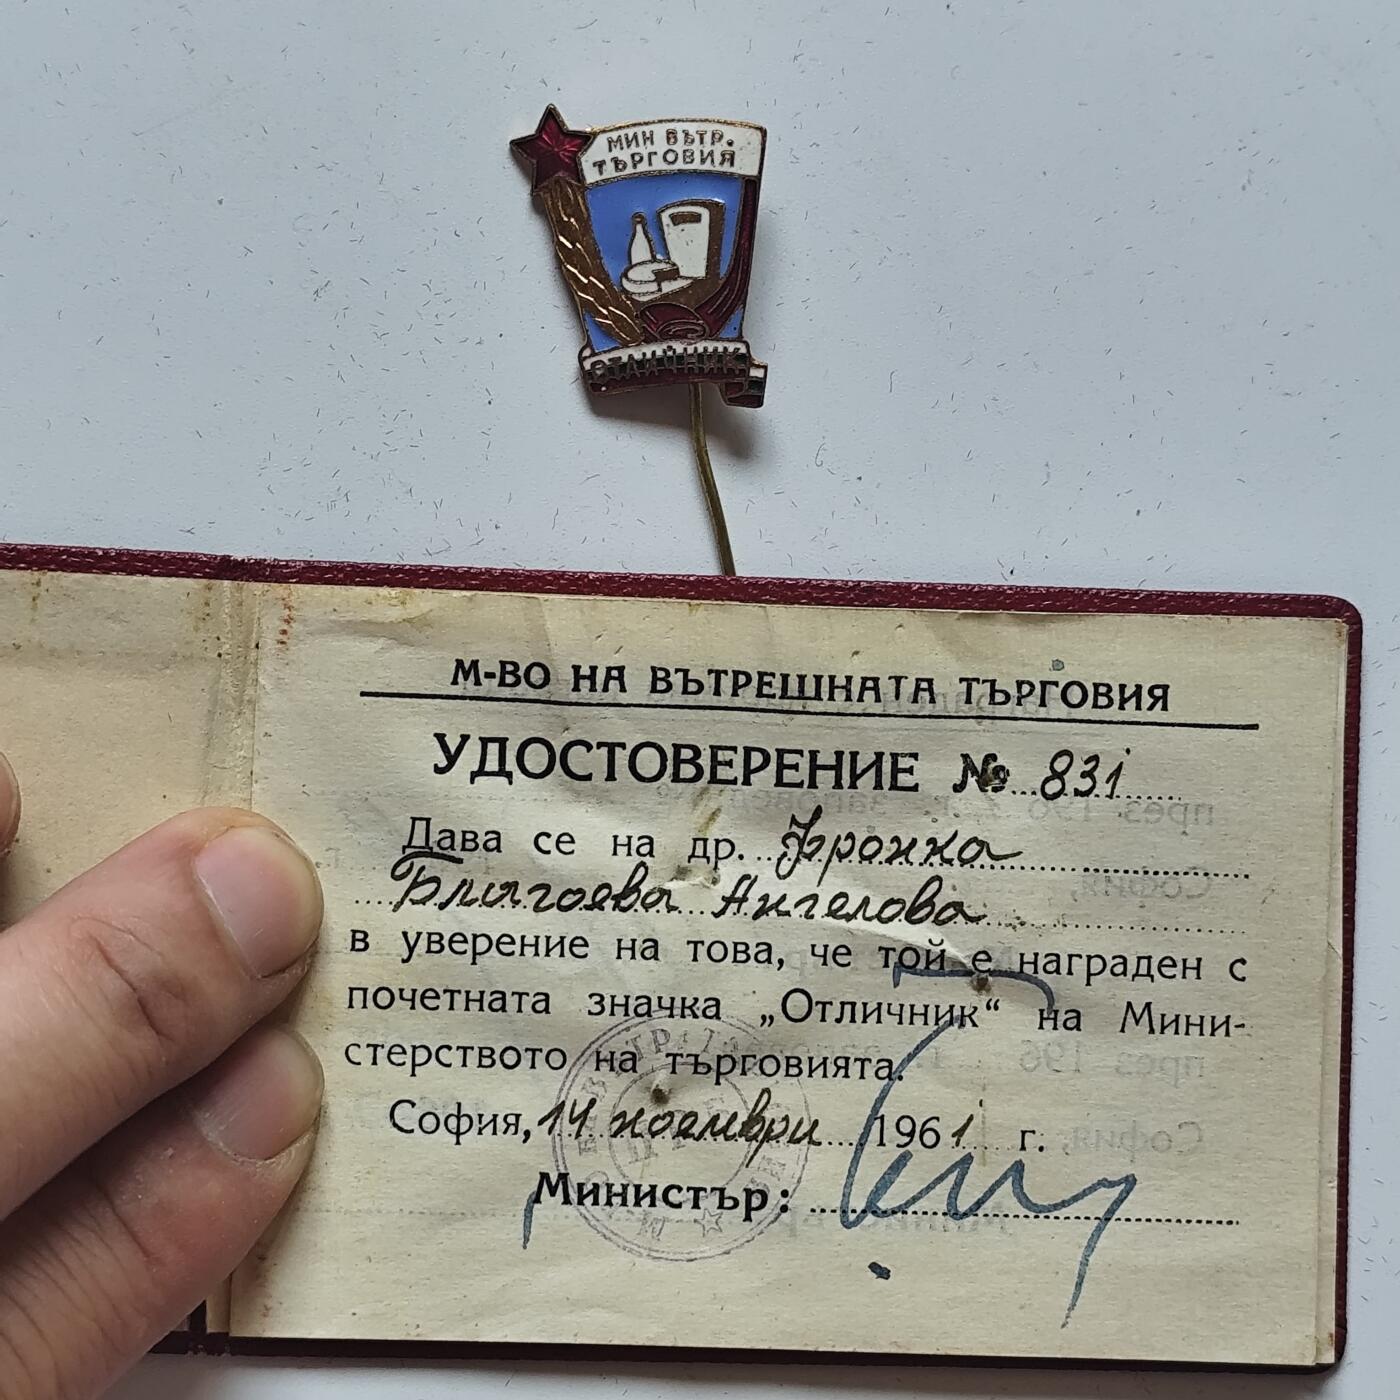 МИН ВЪТР.
ТЪРГОВИЯ
ОТЛИЧНИК
М-ВО НА ВЪТРЕШНАТА ТЪРГОВИЯ
УДОСТОВЕРЕНИЕ № 831
Дава се на др. Фронка
Благоева Ангелова
в уверение на това, че той е награден с
почетната значка „Отличник“ на Мини-
стерството на търговията.
София, 14 ноември 1961 г.
Министър: